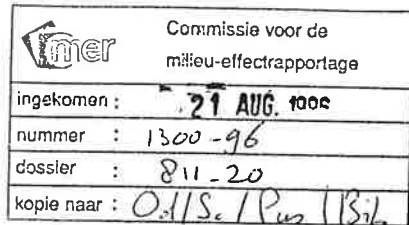 mer
Commissie voor de
milieu-effectrapportage
ingekomen : 21 AUG. 1996
nummer : 1300-96
dossier : 811-20
kopie naar :